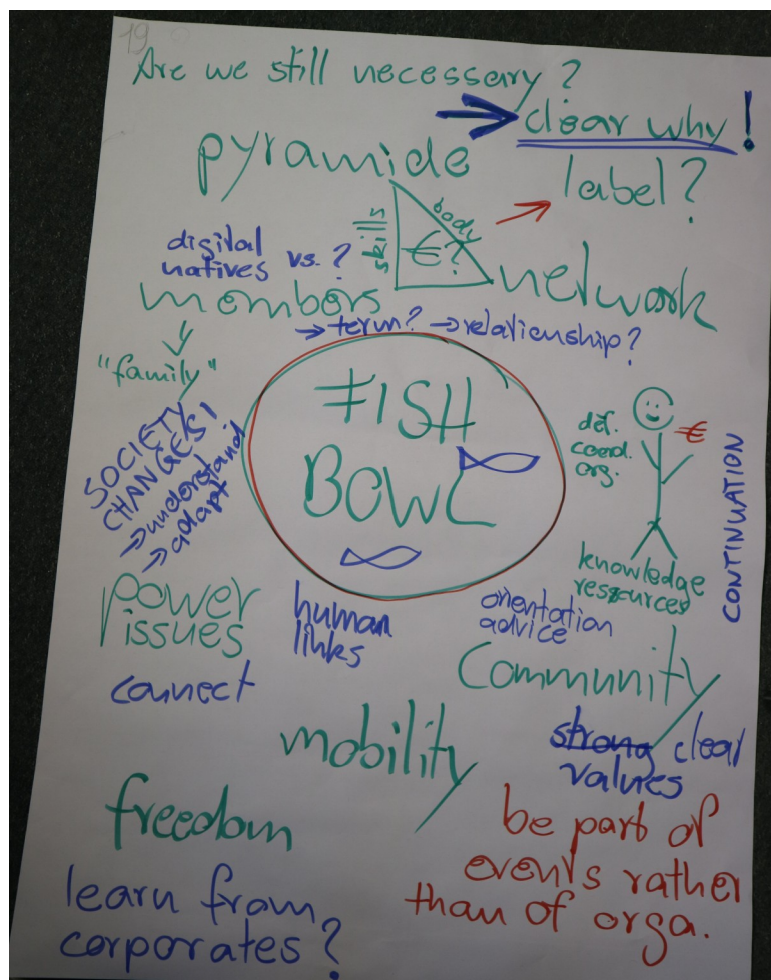 19
Are we still necessary?
clear why!
pyramide
label?
skills
body
€?
digital
natives vs.?
members
network
→ term? → relationship?
"family"
FISH
BOWL
SOCIETY
CHANGES!
→ understand
→ adapt
def.
coord.
org.
€
CONTINUATION
knowledge
resources
power
issues
human
links
orientation
advice
connect
Community
mobility
strong clear
values
freedom
be part of
events rather
than of orga.
learn from
corporates?